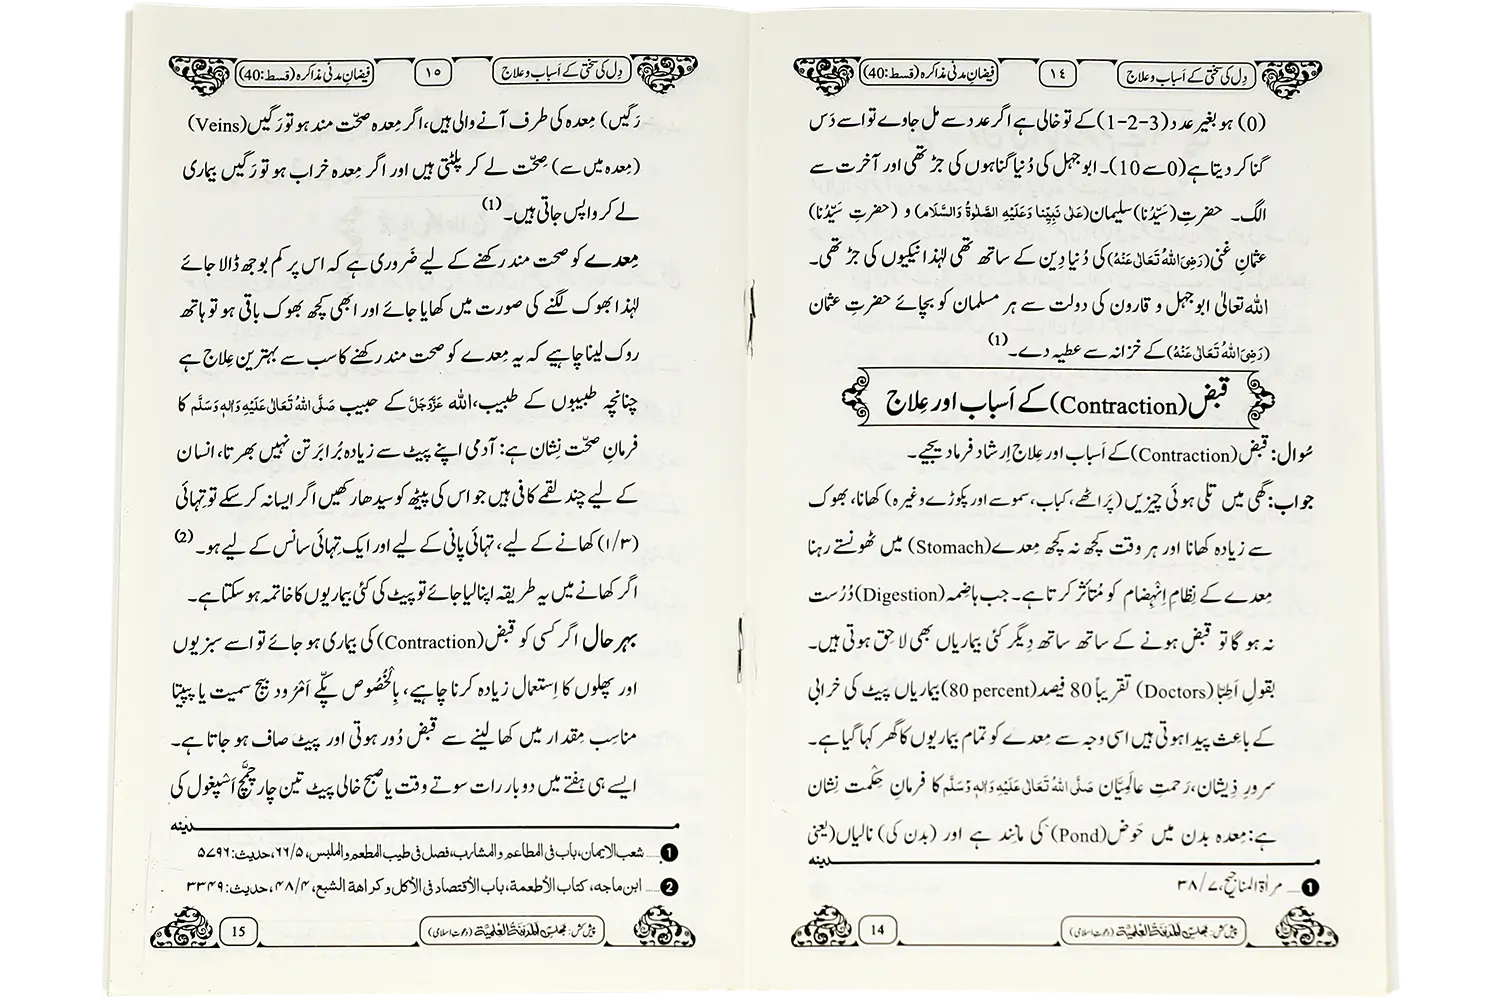 دِل کی سختی کے اَسباب و علاج
١٤
فیضانِ مدنی مذاکرہ (قسط:40)
(0) ہو بغیر عدد (3-2-1) کے تو خالی ہے اگر عدد سے مل جاوے تو اسے دَس
گنا کر دیتا ہے (0 سے 10)۔ ابوجہل کی دُنیا گناہوں کی جڑ تھی اور آخرت سے
الگ۔ حضرتِ (سَیِّدُنا) سلیمان (عَلٰی نَبِیِّنَا وَعَلَیْہِ الصَّلٰوۃُ وَالسَّلَام) و (حضرتِ سَیِّدُنا)
عثمانِ غنی (رَضِیَ اللہُ تَعَالٰی عَنْہُ) کی دُنیا دِین کے ساتھ تھی لہٰذا نیکیوں کی جڑ تھی۔
اللہ تعالیٰ ابوجہل و قارون کی دولت سے ہر مسلمان کو بچائے حضرتِ عثمان
(رَضِیَ اللہُ تَعَالٰی عَنْہُ) کے خزانہ سے عطیہ دے۔ (1)
قبض (Contraction) کے اَسباب اور عِلاج
سُوال: قبض (Contraction) کے اَسباب اور عِلاج اِرشاد فرما دیجیے۔
جواب: گھی میں تلی ہوئی چیزیں (پَراٹھے، کباب، سموسے اور پکوڑے وغیرہ) کھانا، بھوک
سے زیادہ کھانا اور ہر وقت کچھ نہ کچھ مِعدے (Stomach) میں ٹھونستے رہنا
مِعدے کے نِظامِ اِنہِضام کو مُتاَثر کرتا ہے۔ جب ہاضمہ (Digestion) دُرُست
نہ ہو گا تو قبض ہونے کے ساتھ ساتھ دِیگر کئی بیماریاں بھی لاحِق ہوتی ہیں۔
بقولِ اَطِبّا (Doctors) تقریباً 80 فیصد (80 percent) بیماریاں پیٹ کی خرابی
کے باعث پیدا ہوتی ہیں اسی وجہ سے مِعدے کو تمام بیماریوں کا گھر کہا گیا ہے۔
سرورِ ذِیشان، رَحمتِ عالَمِیَّان صَلَّی اللہُ تَعَالٰی عَلَیْہِ وَاٰلِہٖ وَسَلَّم کا فرمانِ حِکمت نشان
ہے: مِعدہ بدن میں حَوض (Pond) کی مانِند ہے اور (بدن کی) نالیاں (یعنی
مدینہ
1 ..... مراٰۃ المناجیح، ۷/ ۳۸
پیش کش: مجلس المدینۃ العلمیۃ (دعوتِ اسلامی)
14
دِل کی سختی کے اَسباب و علاج
١٥
فیضانِ مدنی مذاکرہ (قسط:40)
رَگیں) مِعدہ کی طرف آنے والی ہیں، اگر مِعدہ صحّت مند ہو تو رَگیں (Veins)
(مِعدہ میں سے) صِحّت لے کر پلٹتی ہیں اور اگر مِعدہ خراب ہو تو رَگیں بیماری
لے کر واپس جاتی ہیں۔ (1)
مِعدے کو صحت مند رکھنے کے لیے ضَروری ہے کہ اس پر کم بوجھ ڈالا جائے
لہٰذا بھوک لگنے کی صورت میں کھایا جائے اور ابھی کچھ بھوک باقی ہو تو ہاتھ
روک لینا چاہیے کہ یہ مِعدے کو صحت مند رکھنے کا سب سے بہترین عِلاج ہے
چنانچہ طبیبوں کے طبیب، اللہ عَزَّوَجَلَّ کے حبیب صَلَّی اللہُ تَعَالٰی عَلَیْہِ وَاٰلِہٖ وَسَلَّم کا
فرمانِ صحّت نِشان ہے: آدمی اپنے پیٹ سے زیادہ بُرا بَرتن نہیں بھرتا، انسان
کے لیے چند لقمے کافی ہیں جو اس کی پیٹھ کو سیدھا رکھیں اگر ایسا نہ کر سکے تو تِہائی
(۱/۳) کھانے کے لیے، تہائی پانی کے لیے اور ایک تِہائی سانس کے لیے ہو۔ (2)
اگر کھانے میں یہ طریقہ اپنا لیا جائے تو پیٹ کی کئی بیماریوں کا خاتمہ ہو سکتا ہے۔
بہر حال اگر کسی کو قبض (Contraction) کی بیماری ہو جائے تو اسے سبزیوں
اور پھلوں کا اِستعمال زیادہ کرنا چاہیے، بِالْخُصُوص پکے اَمْرُود بیج سمیت یا پپیتا
مناسِب مِقدار میں کھا لینے سے قبض دُور ہوتی اور پیٹ صاف ہو جاتا ہے۔
ایسے ہی ہفتے میں دو بار رات سوتے وقت یا صبح خالی پیٹ تین چار چمَّچ اَسْپغول کی
مدینہ
1 ..... شعب الایمان، باب فی المطاعم والمشارب، فصل فی طیب المطعم والملبس، ۵/ ۶۶، حدیث: ۵۷۹۶
2 ..... ابن ماجہ، کتاب الأطعمۃ، باب الأقتصاد فی الأکل وکراھۃ الشبع، ۴/ ۴۸، حدیث: ۳۳۴۹
پیش کش: مجلس المدینۃ العلمیۃ (دعوتِ اسلامی)
15